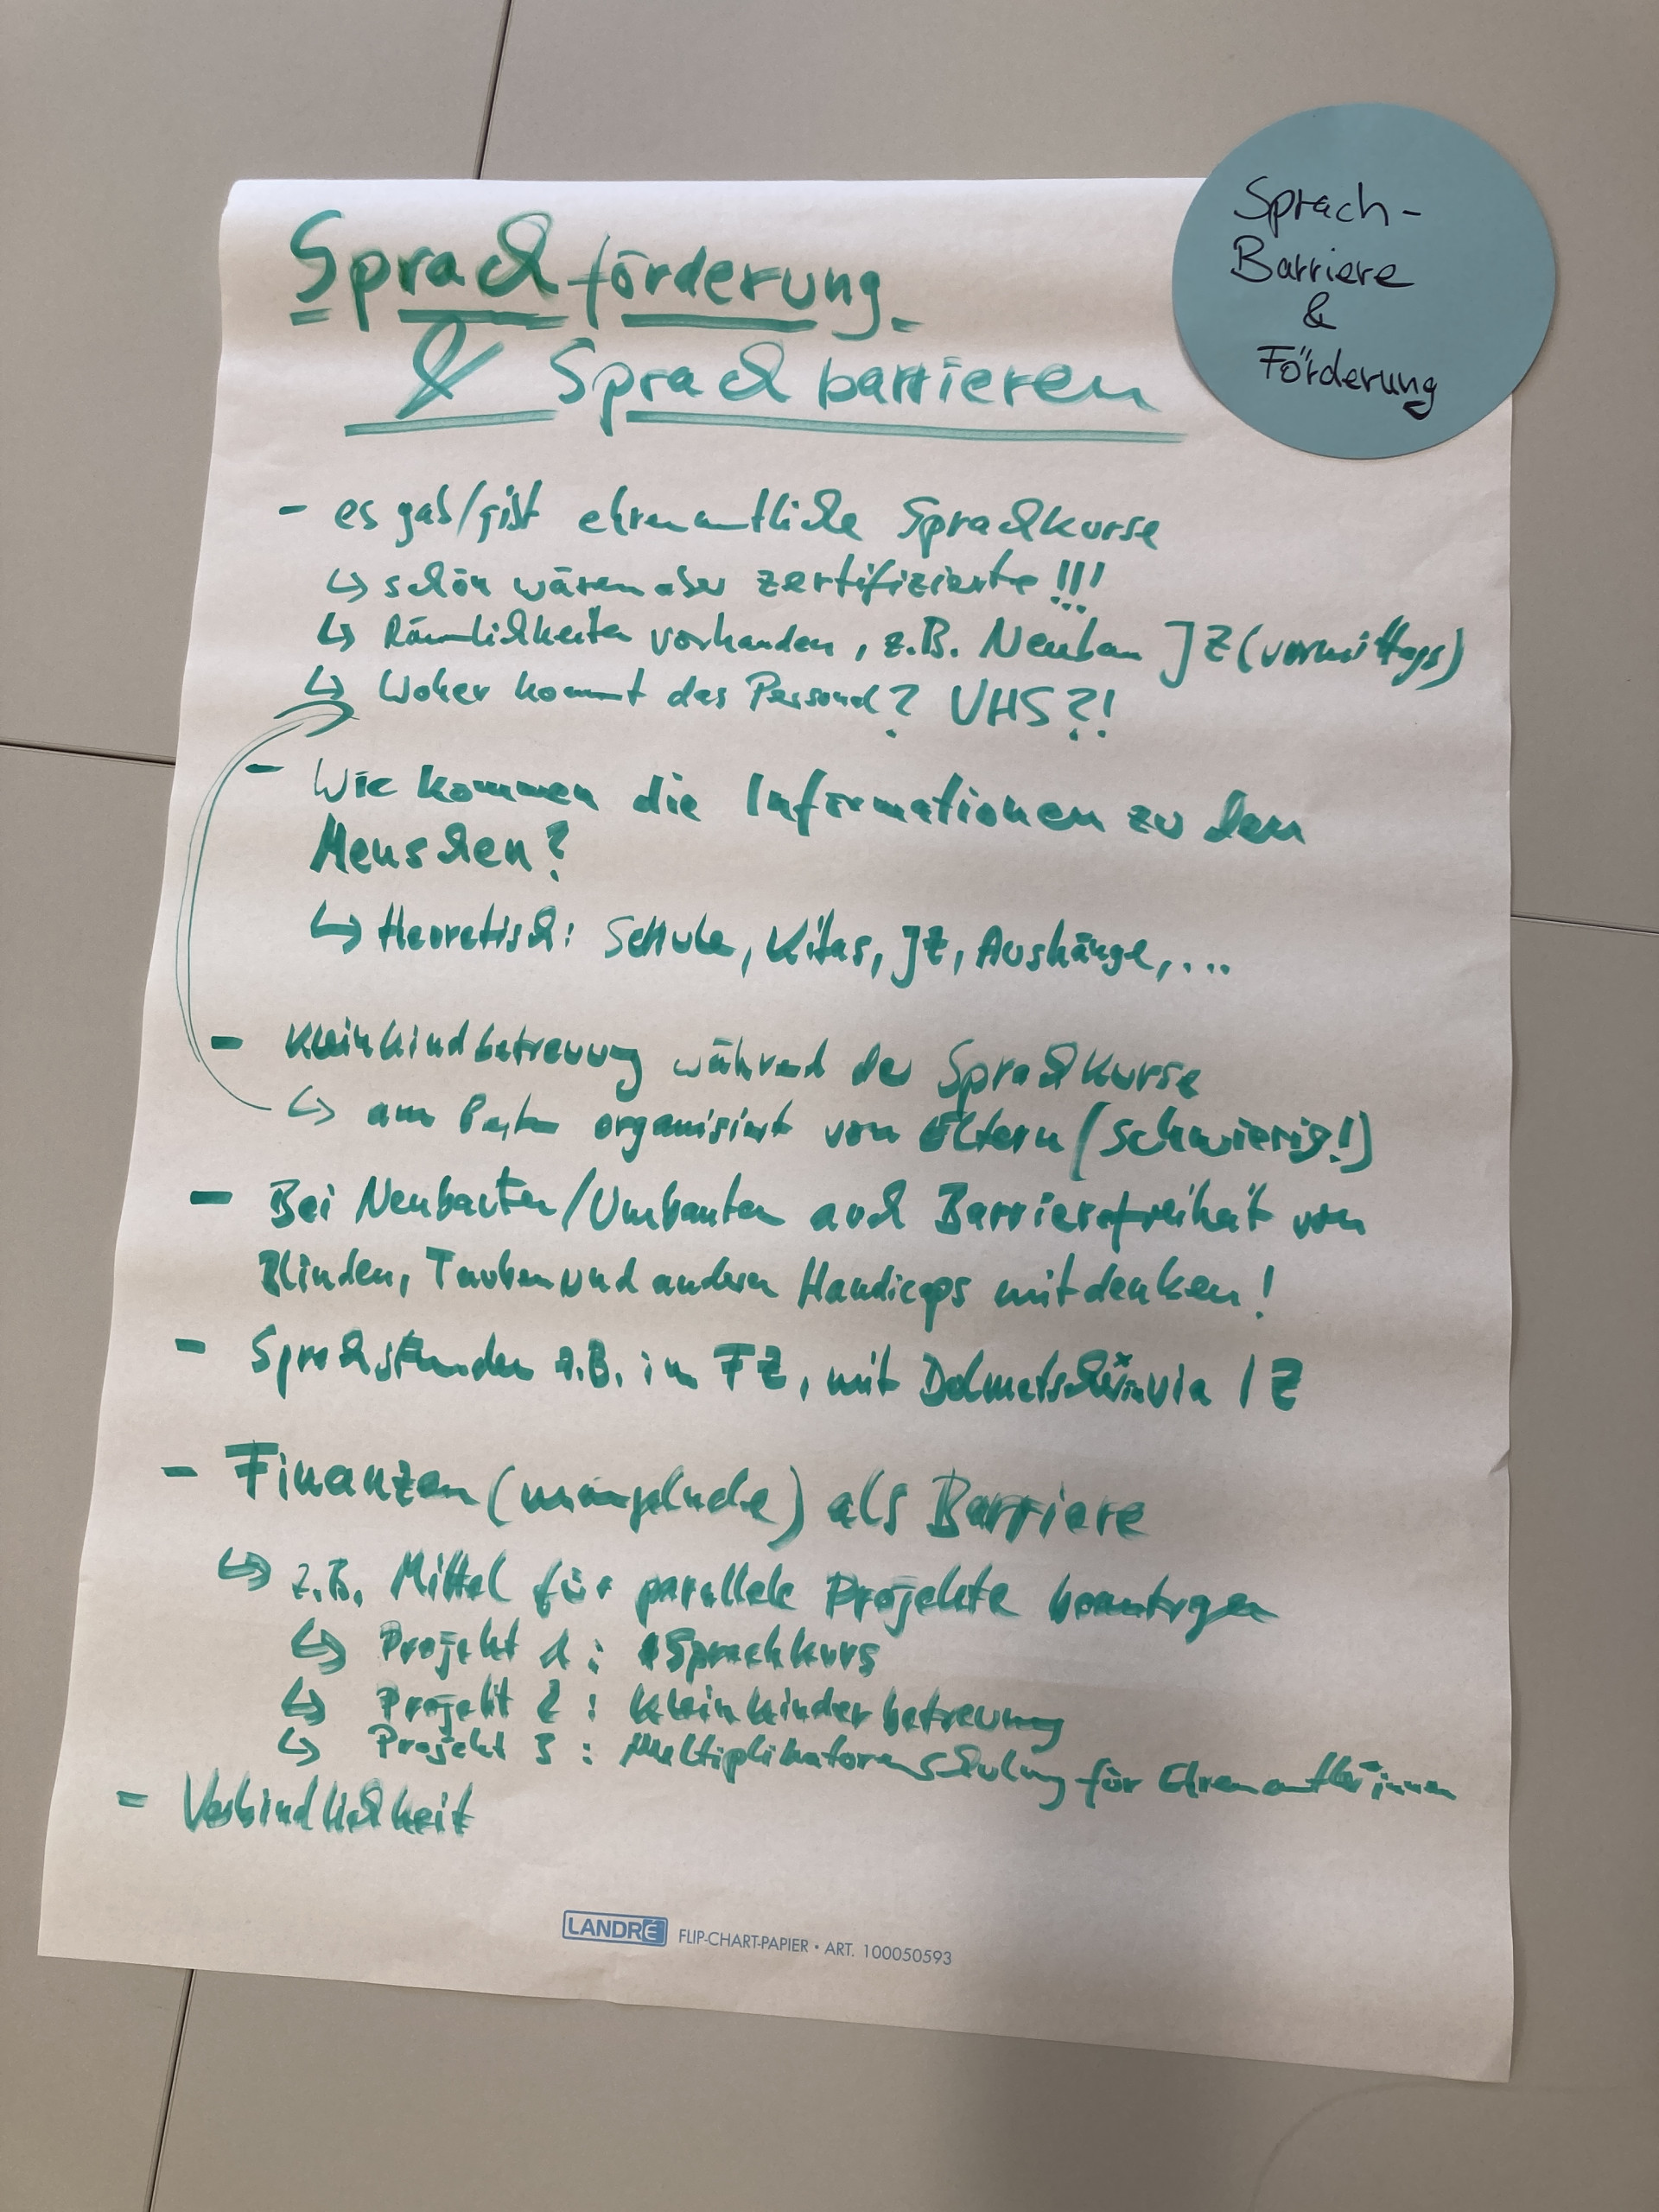 Sprachförderung
& Sprachbarrieren
Sprach-
Barriere
&
Förderung
- es gab/gibt ehrenamtliche Sprachkurse
↳ schön wären aber zertifizierte!!!
↳ Räumlichkeiten vorhanden, z.B. Neubau JZ (vormittags)
↳ Woher kommt das Personal? VHS?!
- Wie kommen die Informationen zu den
Menschen?
↳ theoretisch: Schule, Kitas, JZ, Aushänge,...
- Kleinkindbetreuung während der Sprachkurse
↳ am Besten organisiert von Eltern (schwierig!)
- Bei Neubauten/Umbauten auch Barrierefreiheit von
Blinden, Tauben und anderen Handicaps mitdenken!
- Sprechstunden z.B. im FZ, mit Dolmetscher*in via IZ
- Finanzen (mangelnde) als Barriere
↳ z.B. Mittel für parallele Projekte beantragen
↳ Projekt 1: Sprachkurs
↳ Projekt 2: Kleinkinderbetreuung
↳ Projekt 3: Multiplikatorenschulung für Ehrenamtler*innen
- Verbindlichkeit
LANDRÉ FLIP-CHART-PAPIER • ART. 100050593